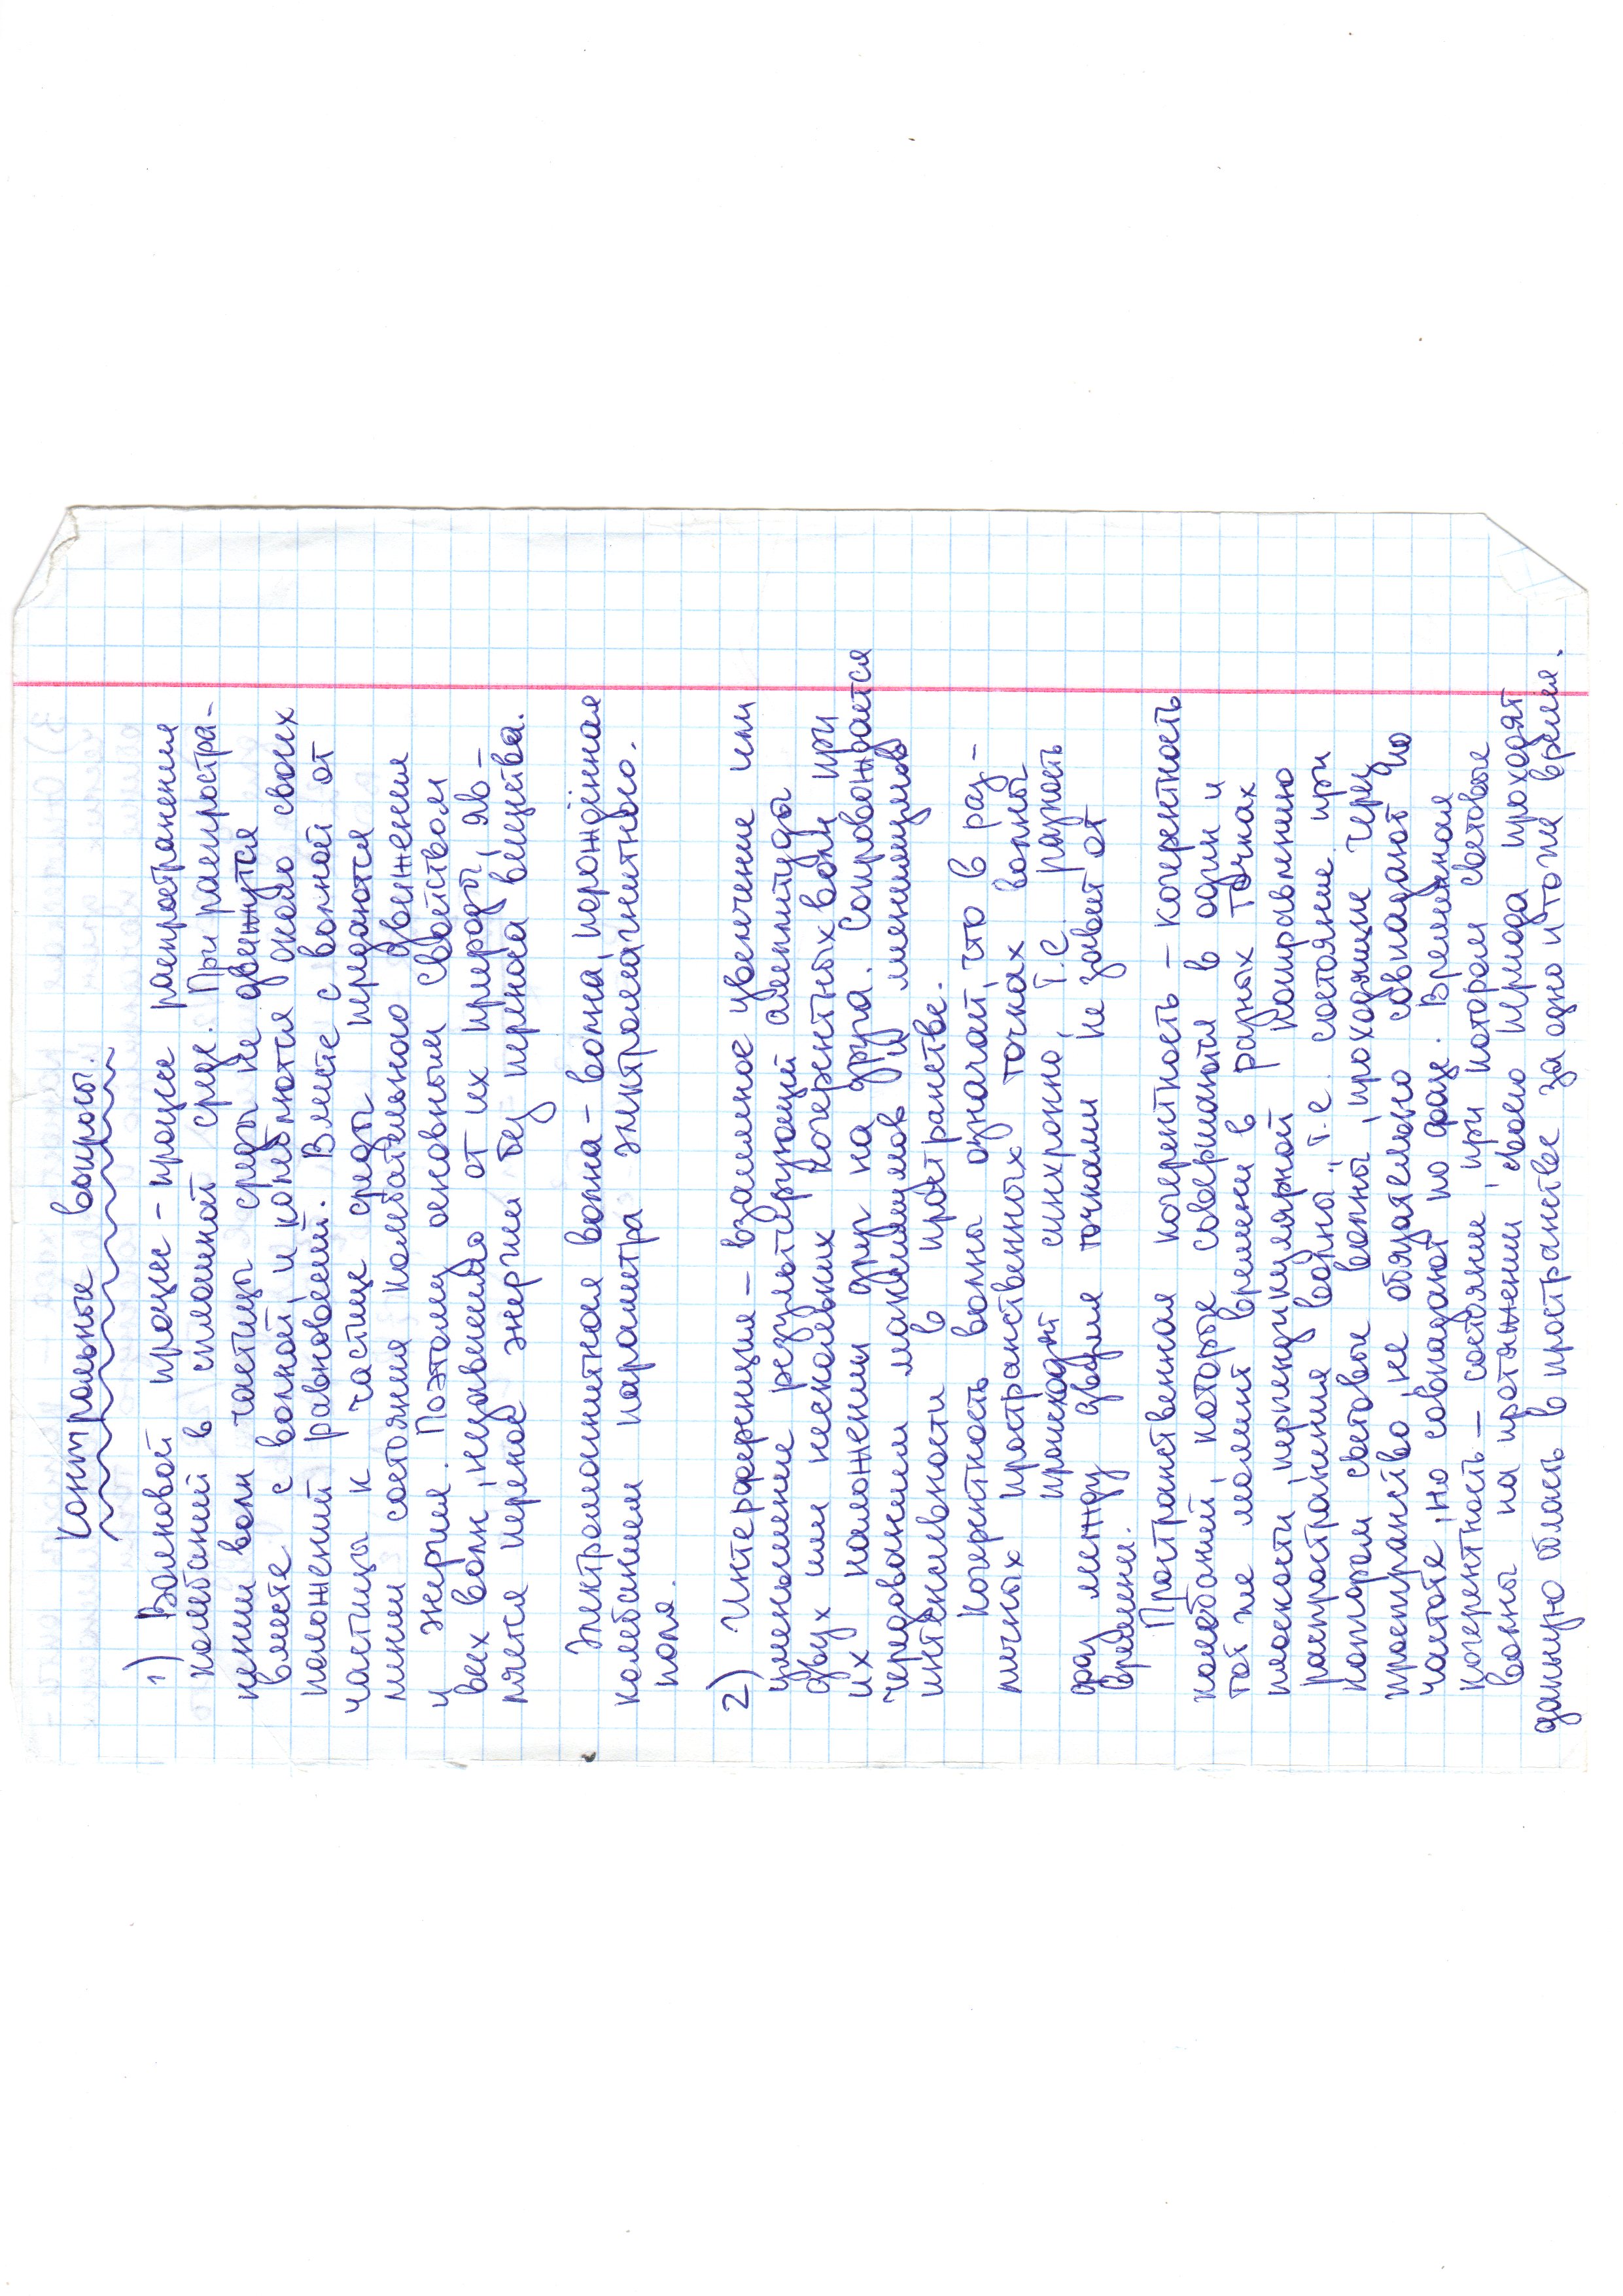 Контрольные вопросы.
1) Волновой процесс – процесс распространения
колебаний в сплошной среде. При распростра-
нении волн частицы среды не движутся
вместе с волной, и колеблются около своих
положений равновесий. Вместе с волной от
частицы к частице среды передаются
лишь состояния колебательного движения
и энергия. Поэтому основным свойством
всех волн, независимо от их природы, яв-
ляется перенос энергии без переноса вещества.
Электромагнитная волна – волна, порождённая
колебанием параметра электромагнитного.
поля.
2) Интерференция – взаимное увеличение или
уменьшение результирующей амплитуды
двух или нескольких когерентных волн при
их наложении друг на друга. Сопровождается
чередованием максимумов и минимумов
интенсивности в пространстве.
Когерентность волны означает, что в раз-
личных пространственных точках волны
происходят синхронно, т.е. разность
фаз между двумя точками не завит от
времени.
Пространственная когерентность – когерентность
колебаний, которые совершаются в один и
тот же момент времени в разных точках
плоскости, перпендикулярной направлению
распространения волны., т.е. состояние при
котором световые волны, проходящие через
пространство, не обязательно совпадают по
частоте, но совпадают по фазе. Временная
когерентность – состояние, при котором световые
волны на протяжении своего периода проходят
данную область в пространстве за одно и тоже время.